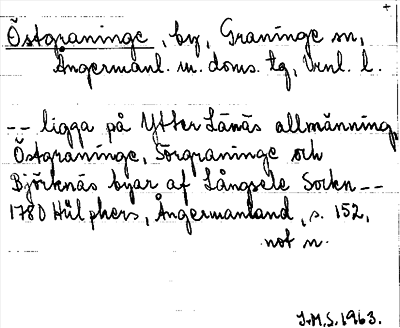 Östgraninge, by, Graninge sn,
Ångermanl. m. doms. tg, Vnl. l.
-- ligga på Ytter Länäs allmänning,
Östgraninge,Förgraninge och
Björknäs byar af Långsele Sockn --
1780 Hülphers, Ångermanland, s. 152,
not n.
J.M.S. 1963.